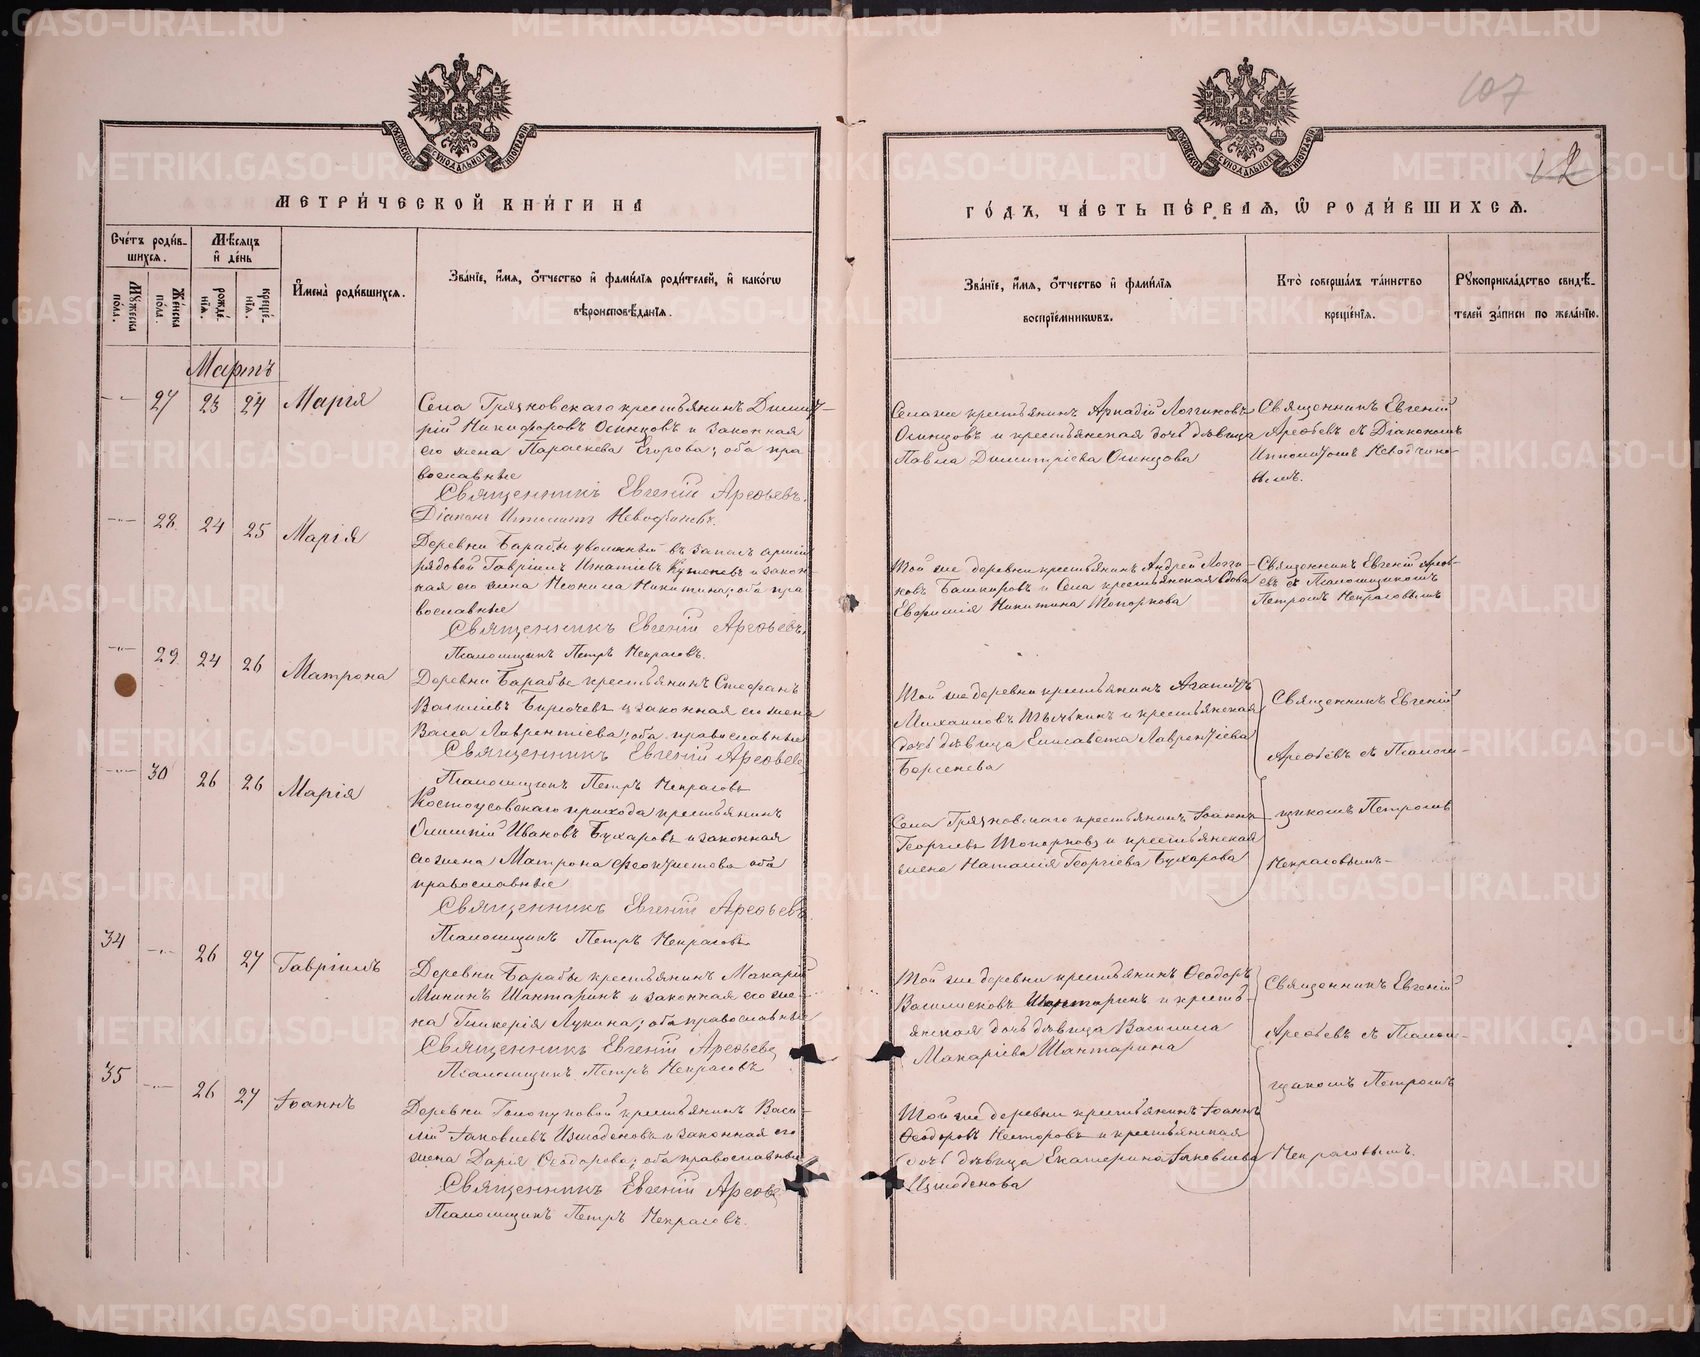 107
12
МЕТРИ́ЧЕСКОЙ КНИ́ГИ НА
ГО́ДЪ, ЧА́СТЬ ПЕ́РВАЯ, Ѡ РОДИ́ВШИХСЯ.
Сче́тъ роди́в-
шихся.
Мꙋжеска по́ла.
Же́нска по́ла.
Мѣ́сяцъ и де́нь
рожде́нїя.
креще́нїя.
Имена̀ роди́вшихся.
Зва́нїе, и́мя, о́тчество и фами́лїя роди́телей, и како́гѡ
вѣроисповѣ́данїя.
Зва́нїе, и́мя, о́тчество и фами́лїя
воспрїе́мниковъ.
Кто̀ соверша́лъ та́инство
креще́нїя.
Рꙋкоприкла́дство свидѣ́-
телей за́писи по жела́нїю.
Мартъ
27 23 24 Марія
Села Грязновскаго крестьянинъ Димит-
рій Никифоровъ Осинцовъ и законная
его жена Параскева Егорова; оба пра
вославные
Священникъ Евгеній Арефьевъ.
Діаконъ Ипполитъ
Селаже крестьянинъ Аркадій Логиновъ
Осинцовъ и крестьянская дочь дѣвица
Павла Димитріева Осинцова
Священникъ Евгеній
Арефьевъ съ Діакономъ
Ипполитомъ
28. 24 25 Марія
Деревни Барабы уволенный въ запасъ арміи
рядовой Гавріилъ Игнатіевъ и закон-
ная его жена Неонила Никитина; оба пра
вославные
Священникъ Евгеній Арефьевъ.
Псаломщикъ Петръ Некрасовъ.
Той же деревни крестьянинъ Андрей Логи-
новъ Башкировъ и Села крестьянская вдова
Евфимія Никитина Топоркова
Священникъ Евгеній Арефь-
евъ съ Псаломщикомъ
Петромъ Некрасовымъ
29. 24 26 Матрона
Деревни Барабы крестьянинъ Стефанъ
Василіевъ и законная его жена
Васа Лаврентіева; оба православные
Священникъ Евгеній Арефьевъ
Псаломщикъ Петръ Некрасовъ
Той же деревни крестьянинъ
Михаиловъ и крестьянская
дочь дѣвица Елисавета Лаврентіева
Берсенева
Священникъ Евгеній
Арефьевъ съ Псалом-
30 26 26 Марія
Костоусовскаго прихода крестьянинъ
Ивановъ Бухаровъ и законная
его жена Матрона Феоктистова оба
православные
Священникъ Евгеній Арефьевъ
Псаломщикъ Петръ Некрасовъ
Села Грязновскаго крестьянинъ Іоаннъ
Георгіевъ Топорковъ и крестьянская
жена Наталія Георгіева Бухарова
щикомъ Петромъ
Некрасовымъ
34 26 27 Гавріилъ
Деревни Барабы крестьянинъ Макарій
Мининъ Шантаринъ и законная его же-
на Гликерія Лукина; оба православные
Священникъ Евгеній Арефьевъ
Псаломщикъ Петръ Некрасовъ
Той же деревни крестьянинъ Ѳеодоръ
Василисковъ Шантаринъ и кресть-
янская дочь дѣвица Василиса
Макаріева Шантарина
Священникъ Евгеній
Арефьевъ съ Псалом-
35 26 27 Іоаннъ
Деревни крестьянинъ Васи-
лій Іаковлевъ Измоденовъ и законная его
жена Дарія Ѳеодорова; оба православные
Священникъ Евгеній Арефьевъ
Псаломщикъ Петръ Некрасовъ.
Той же деревни крестьянинъ Іоаннъ
Ѳеодоровъ Несторовъ и крестьянская
дочь дѣвица Екатерина Іаковлева
Измоденова
щикомъ Петромъ
Некрасовымъ.
METRIKI.GASO-URAL.RU